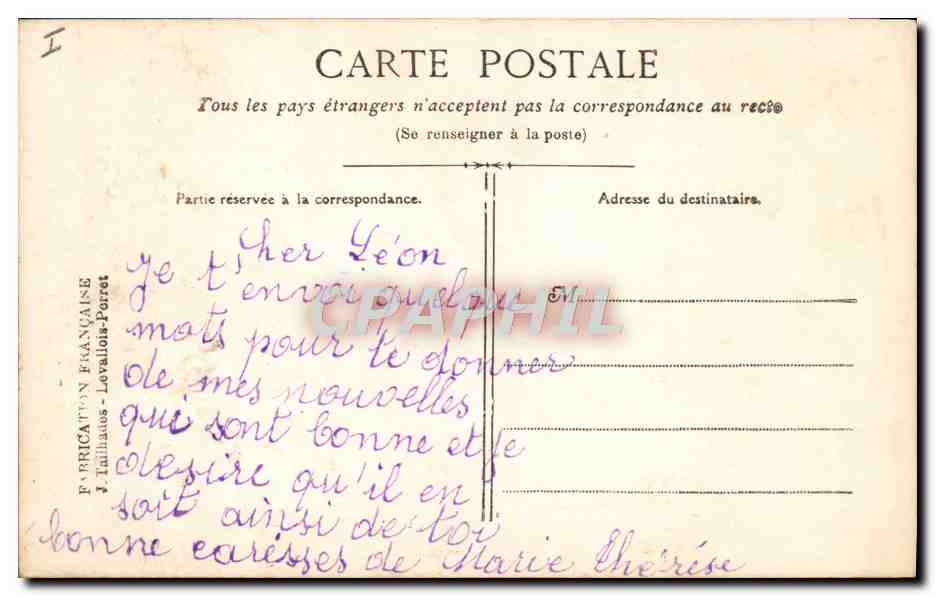 I
CARTE POSTALE
Tous les pays étrangers n'acceptent pas la correspondance au recto
(Se renseigner à la poste)
Partie réservée à la correspondance.
Adresse du destinataire.
FABRICATION FRANÇAISE
J. Tailhades - Levallois-Perret
Cher Léon
Je t'envoi quelque
mots pour te donner
de mes nouvelles
qui sont bonne et je
desire qu'il en
soit ainsi de toi
bonne caresses de Marie Thérèse
M
CPAPHIL